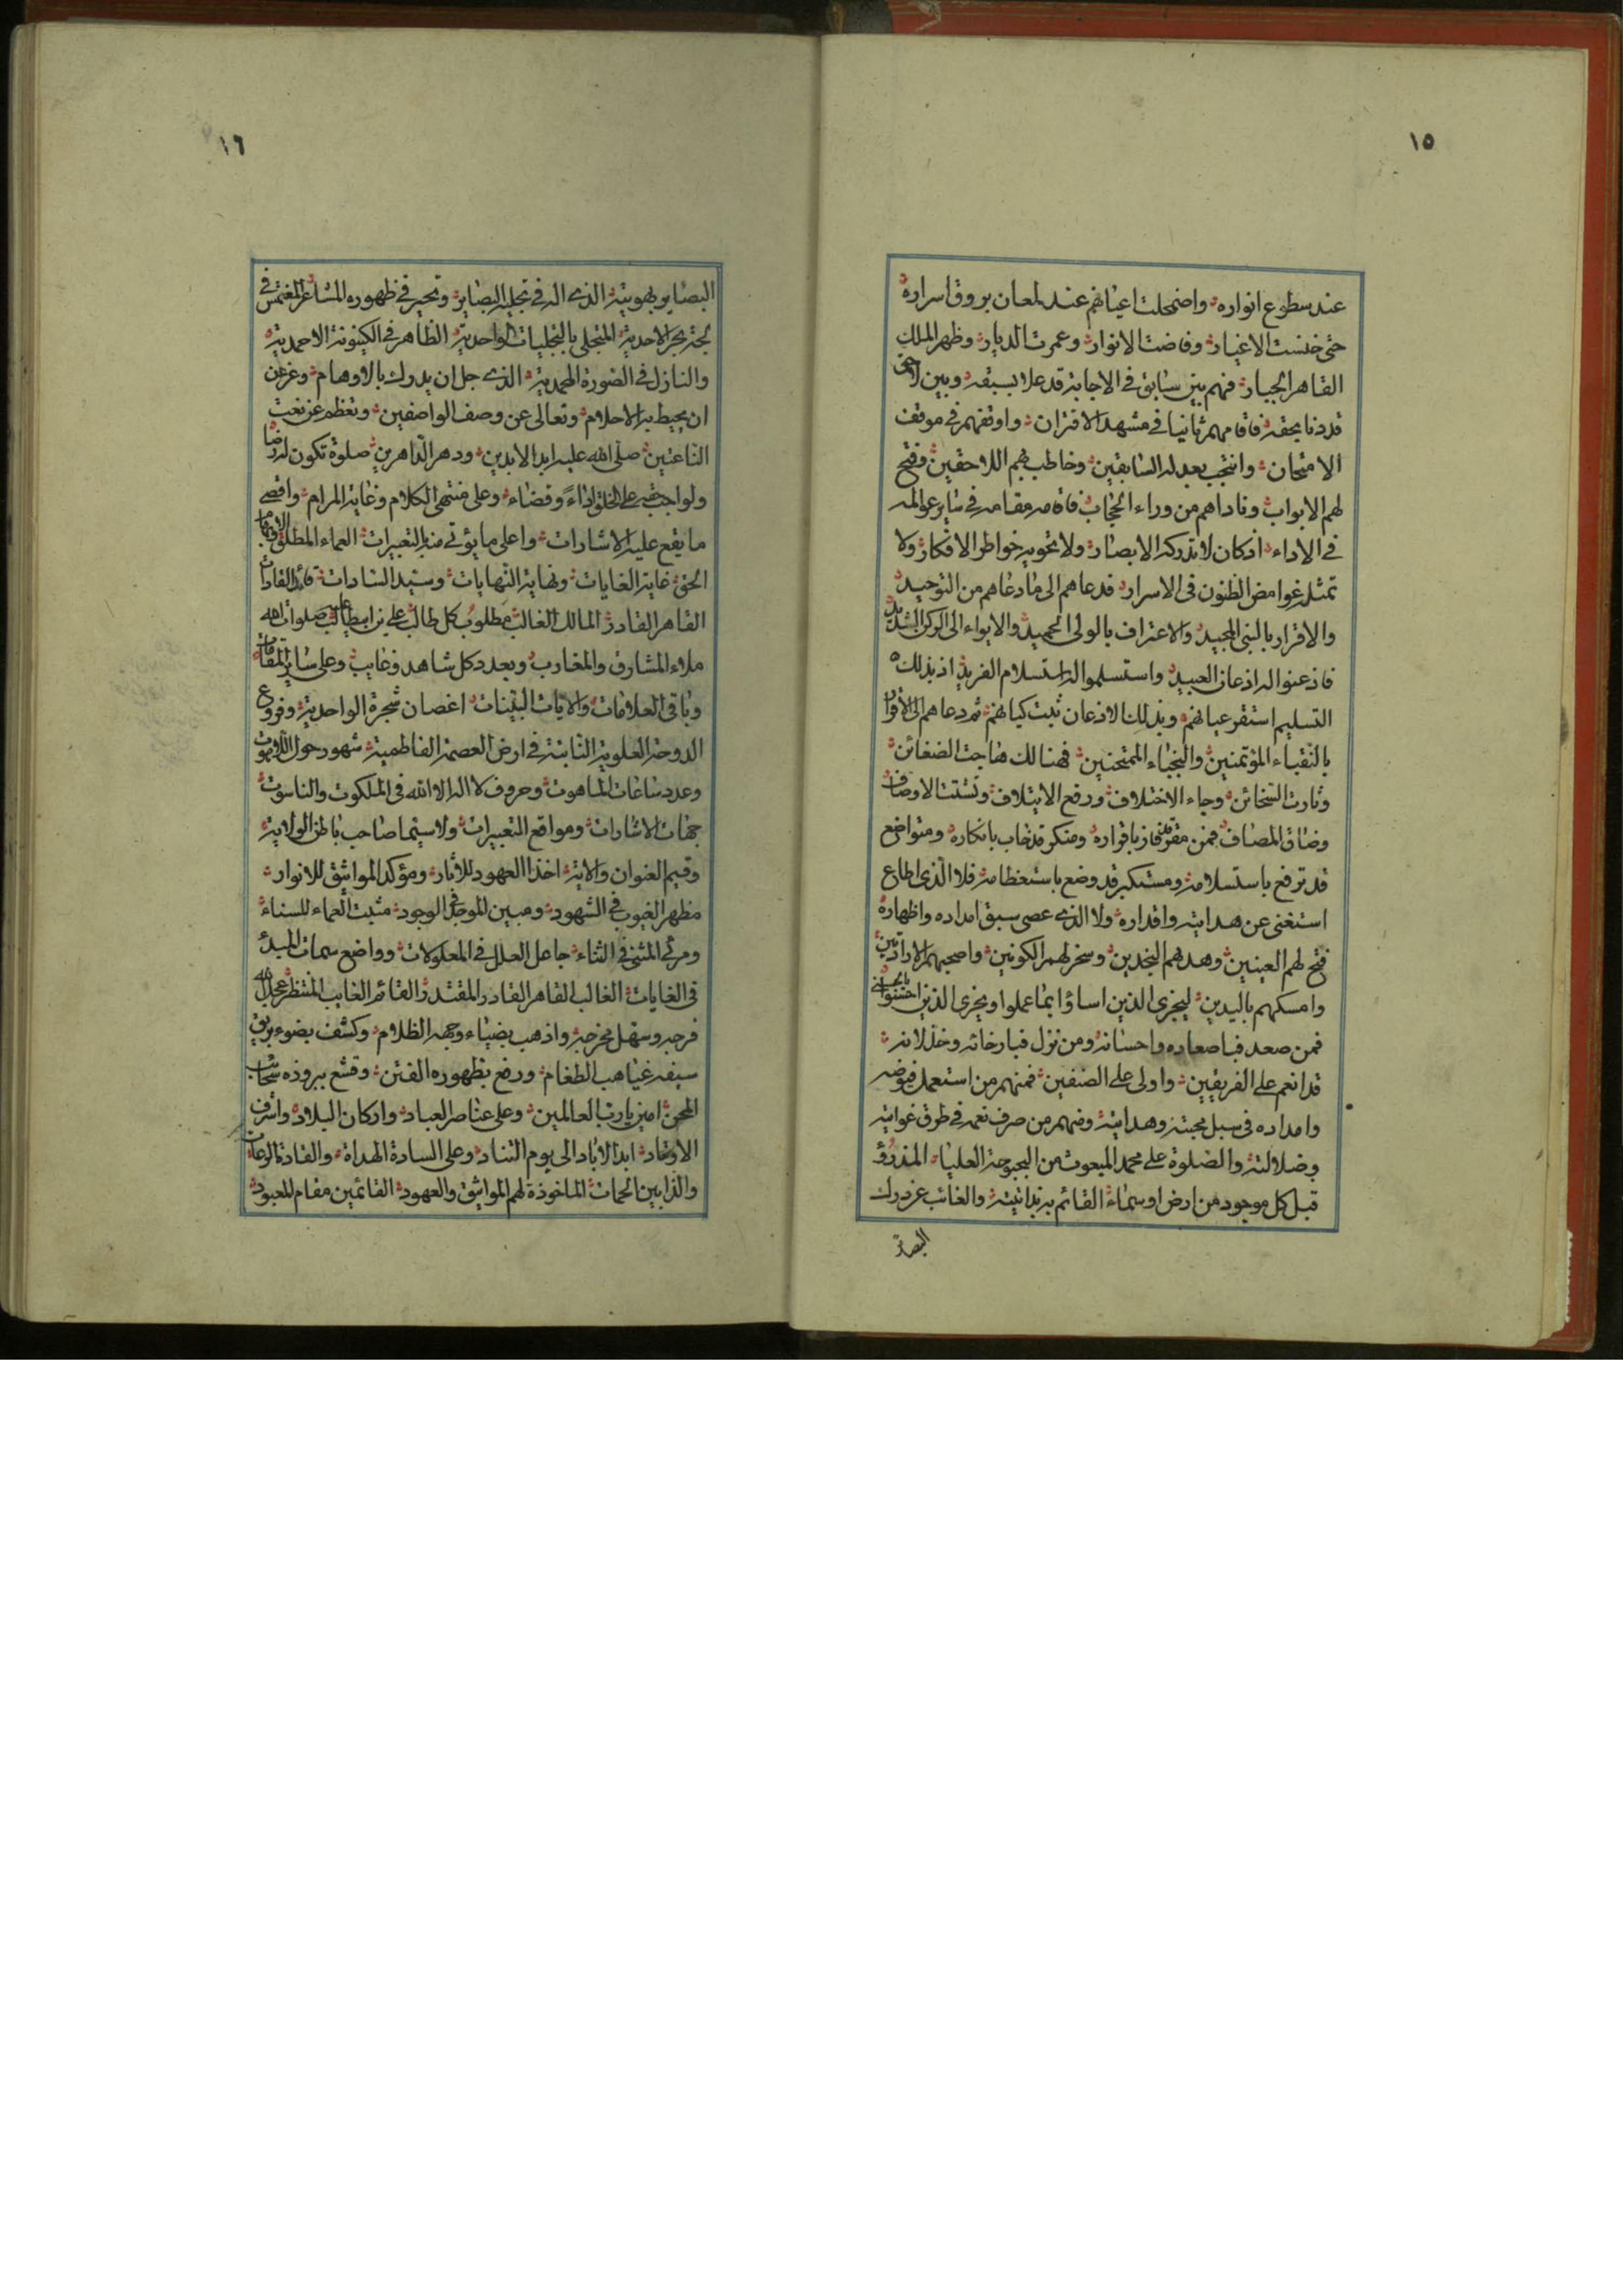 ١٥
عند سطوع انواره واضمحلت اعيانهم عند لمعان بروق اسراره
حتى خنست الاغيار وفاضت الانوار وعمرت الديار وظهر الملك
القاهر الجبار فمنهم بين سابق في الاجابة قد علا بسبقه وبين لاحق
قد دنا بحقه فاقامهم ثانيا في مشهد الاقتران واوقفهم في موقف
الامتحان وانتجب بعدله السابقين وخاطب بهم اللاحقين وفتح
لهم الابواب وناداهم من وراء الحجاب فاقامه مقامه في ساير عوالمه
في الاداء اذ كان لا تدركه الابصار ولا تحويه خواطر الافكار ولا
تمثله غوامض الظنون في الاسرار قد دعاهم الى ما دعاهم من التوحيد
والاقرار بالنبي المجيد والاعتراف بالولي الحميد والايواء الى الركن الشديد
فاذعنوا له اذعان العبيد واستسلموا له استسلام الفريد اذ بذلك
التسليم استقر عيانهم وبذلك الاذعان ثبت كيانهم ثم دعاهم الى الاقرار
بالنقباء المؤتمنين والنجباء الممتحنين فهنالك هاجت الضغائن
وثارت السخائن وجاء الاختلاف ورفع الايتلاف وتشتت الاوصاف
وضاق المصاف فمن مقر قد فاز باقراره ومنكر قد خاب بانكاره ومتواضع
قد ترفع باستسلامه ومستكبر قد وضع باستعظامه فلا الذي اطاع
استغنى عن هدايته واقداره ولا الذي عصى سبق امداده واظهاره
فتح لهم العينين وهداهم النجدين وسخر لهم الكونين واصحبهم الارادتين
وامسكهم باليدين ليجزي الذين اساؤا بما عملوا ويجزي الذين احسنوا بالحسنى
فمن صعد فباصعاده واحسانه ومن نزل فبارخائه وخذلانه
قد انعم على الفريقين واولى على الصنفين فمنهم من استعمل فيوضه
وامداده في سبل محبته وهدايته ومنهم من صرف نعمه في طرق غوايته
وضلالته والصلوة على محمد المبعوث من البحبوحة العلياء المذرؤ
قبل كل موجود من ارض او سماء القائم بربانيته والغائب عن درك
البصائر
١٦
البصاير بهويته الذي اله في تجليه البصاير وتحير في ظهوره المشاعر المغتمس في
لجة بحر الاحدية المتجلي بالتجليات الواحدية الظاهر في الكينونة الاحمدية
والنازل في الصورة المحمدية الذي جل ان يدرك بالاوهام وعز عن
ان يحيط به الاحلام وتعالى عن وصف الواصفين وتعظم عن نعت
الناعتين صلى الله عليه ابد الابدين ودهر الداهرين صلوة تكون له رضا
ولواجب حقه على الخلق اداءً وقضاء وعلى منتهى الكلام وغاية المرام واقصى
ما يقع عليه الاشارات واعلى ما يؤتى منه التعبيرات العماء المطلق
الحق غاية الغايات ونهاية النهايات وسيد السادات قائد القادات
القاهر القادر المالك الغالب مطلوب كل طالب علي بن ابيطالب صلوات الله عليه
ملاء المشارق والمغارب وبعدد كل شاهد وغايب وعلى ساير المقامات
وباقي العلامات والايات البينات اغصان شجرة الواحدية وفروع
الدوحة العلوية الثابتة في ارض العصمة الفاطمية شهور حول اللاهوت
وعدد ساعات الماهوت وحروف لا اله الا الله في الملكوت والناسوت
جهات الاشارات ومواقع التعبيرات ولا سيما صاحب باطن الولاية
وقيم العنوان والاية اخذ العهود للأبار ومؤكد المواثيق للانوار
مظهر الغيوب في الشهود ومبين الموجد في الوجود مثبت العماء للسناء
ومرئى المثنى في الثناء جاعل العلل في المعلولات وواضع سمات المبدء
في الغايات الغالب القاهر القادر المقتدر القائم الغايب المنتظر عجل الله
فرجه وسهل مخرجه واذهب بضياء وجهه الظلام وكشف بضوء بريق
سيفه غياهب الطغام ورفع بظهوره الفتن وقشع ببروزه سحائب
المحن امين يا رب العالمين وعلى عناصر العباد واركان البلاد واشرف
الاوتاد ابد الاباد الى يوم التناد وعلى السادة الهداة والقادة الدعات
والذابين الحمات الماخوذة لهم المواثيق والعهود القائمين مقام المعبود